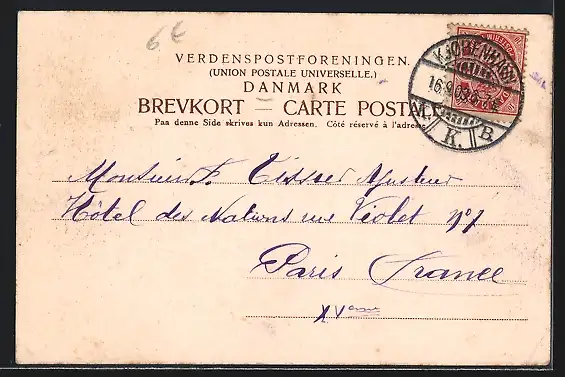 6 €
VERDENSPOSTFORENINGEN.
(UNION POSTALE UNIVERSELLE.)
DANMARK
BREVKORT — CARTE POSTALE
Paa denne Side skrives kun Adressen. Côté réservé à l'adresse.
KJØBENHAVN
16.9.03
K. B
Monsieur F.
Hôtel des Nations rue Violet n°7
Paris France
XVème